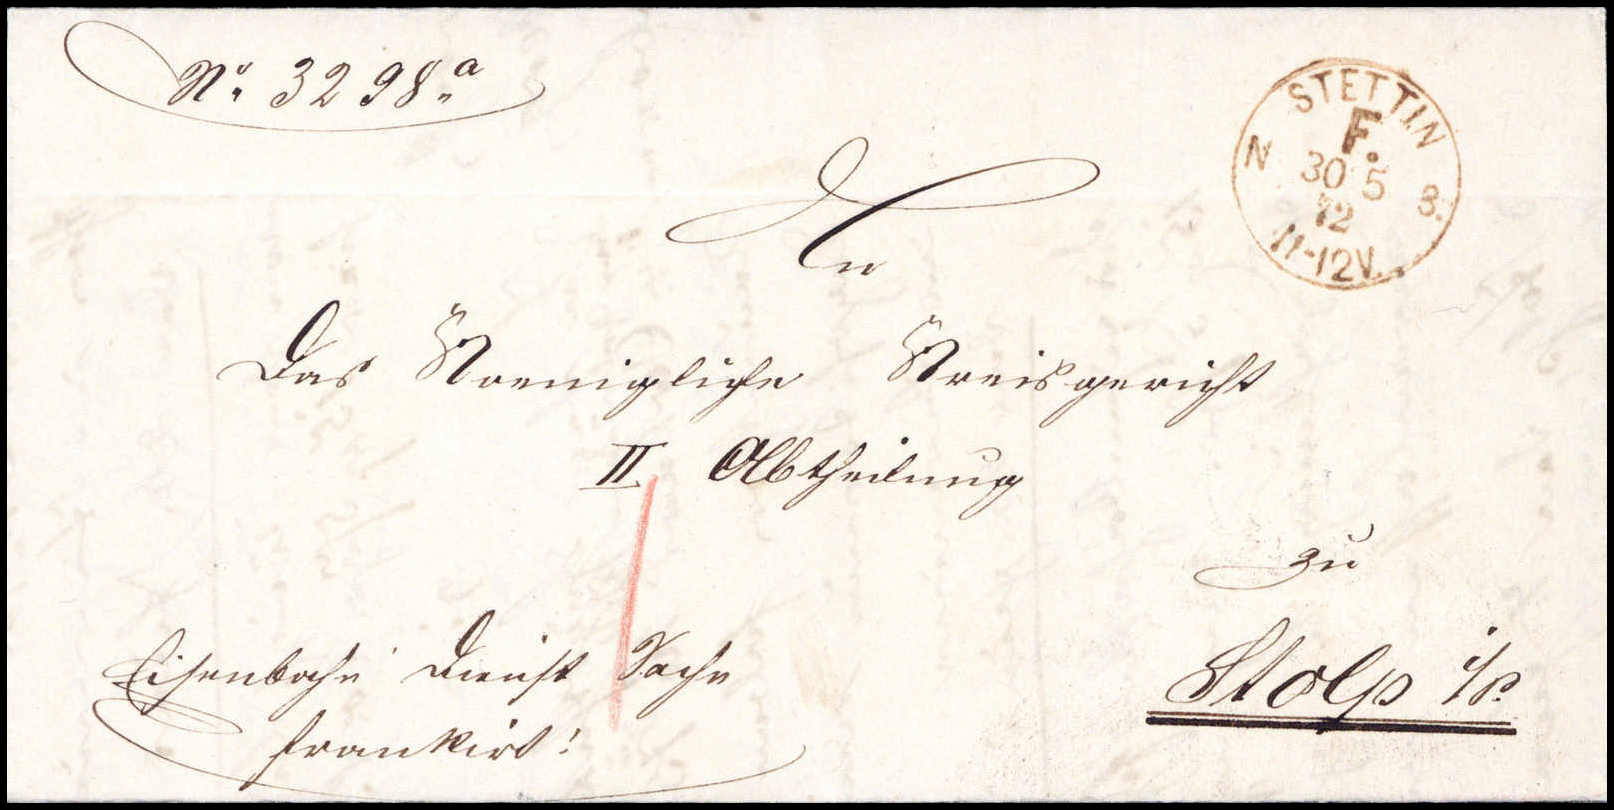 No 3298a
STETTIN
F.
N 30 5 3.
72
11-12V.
An
Das Koenigliche Kreisgericht
II Abtheilung
zu
Stolp i/P.
Eisenbahn Dienst Sache
frankirt!